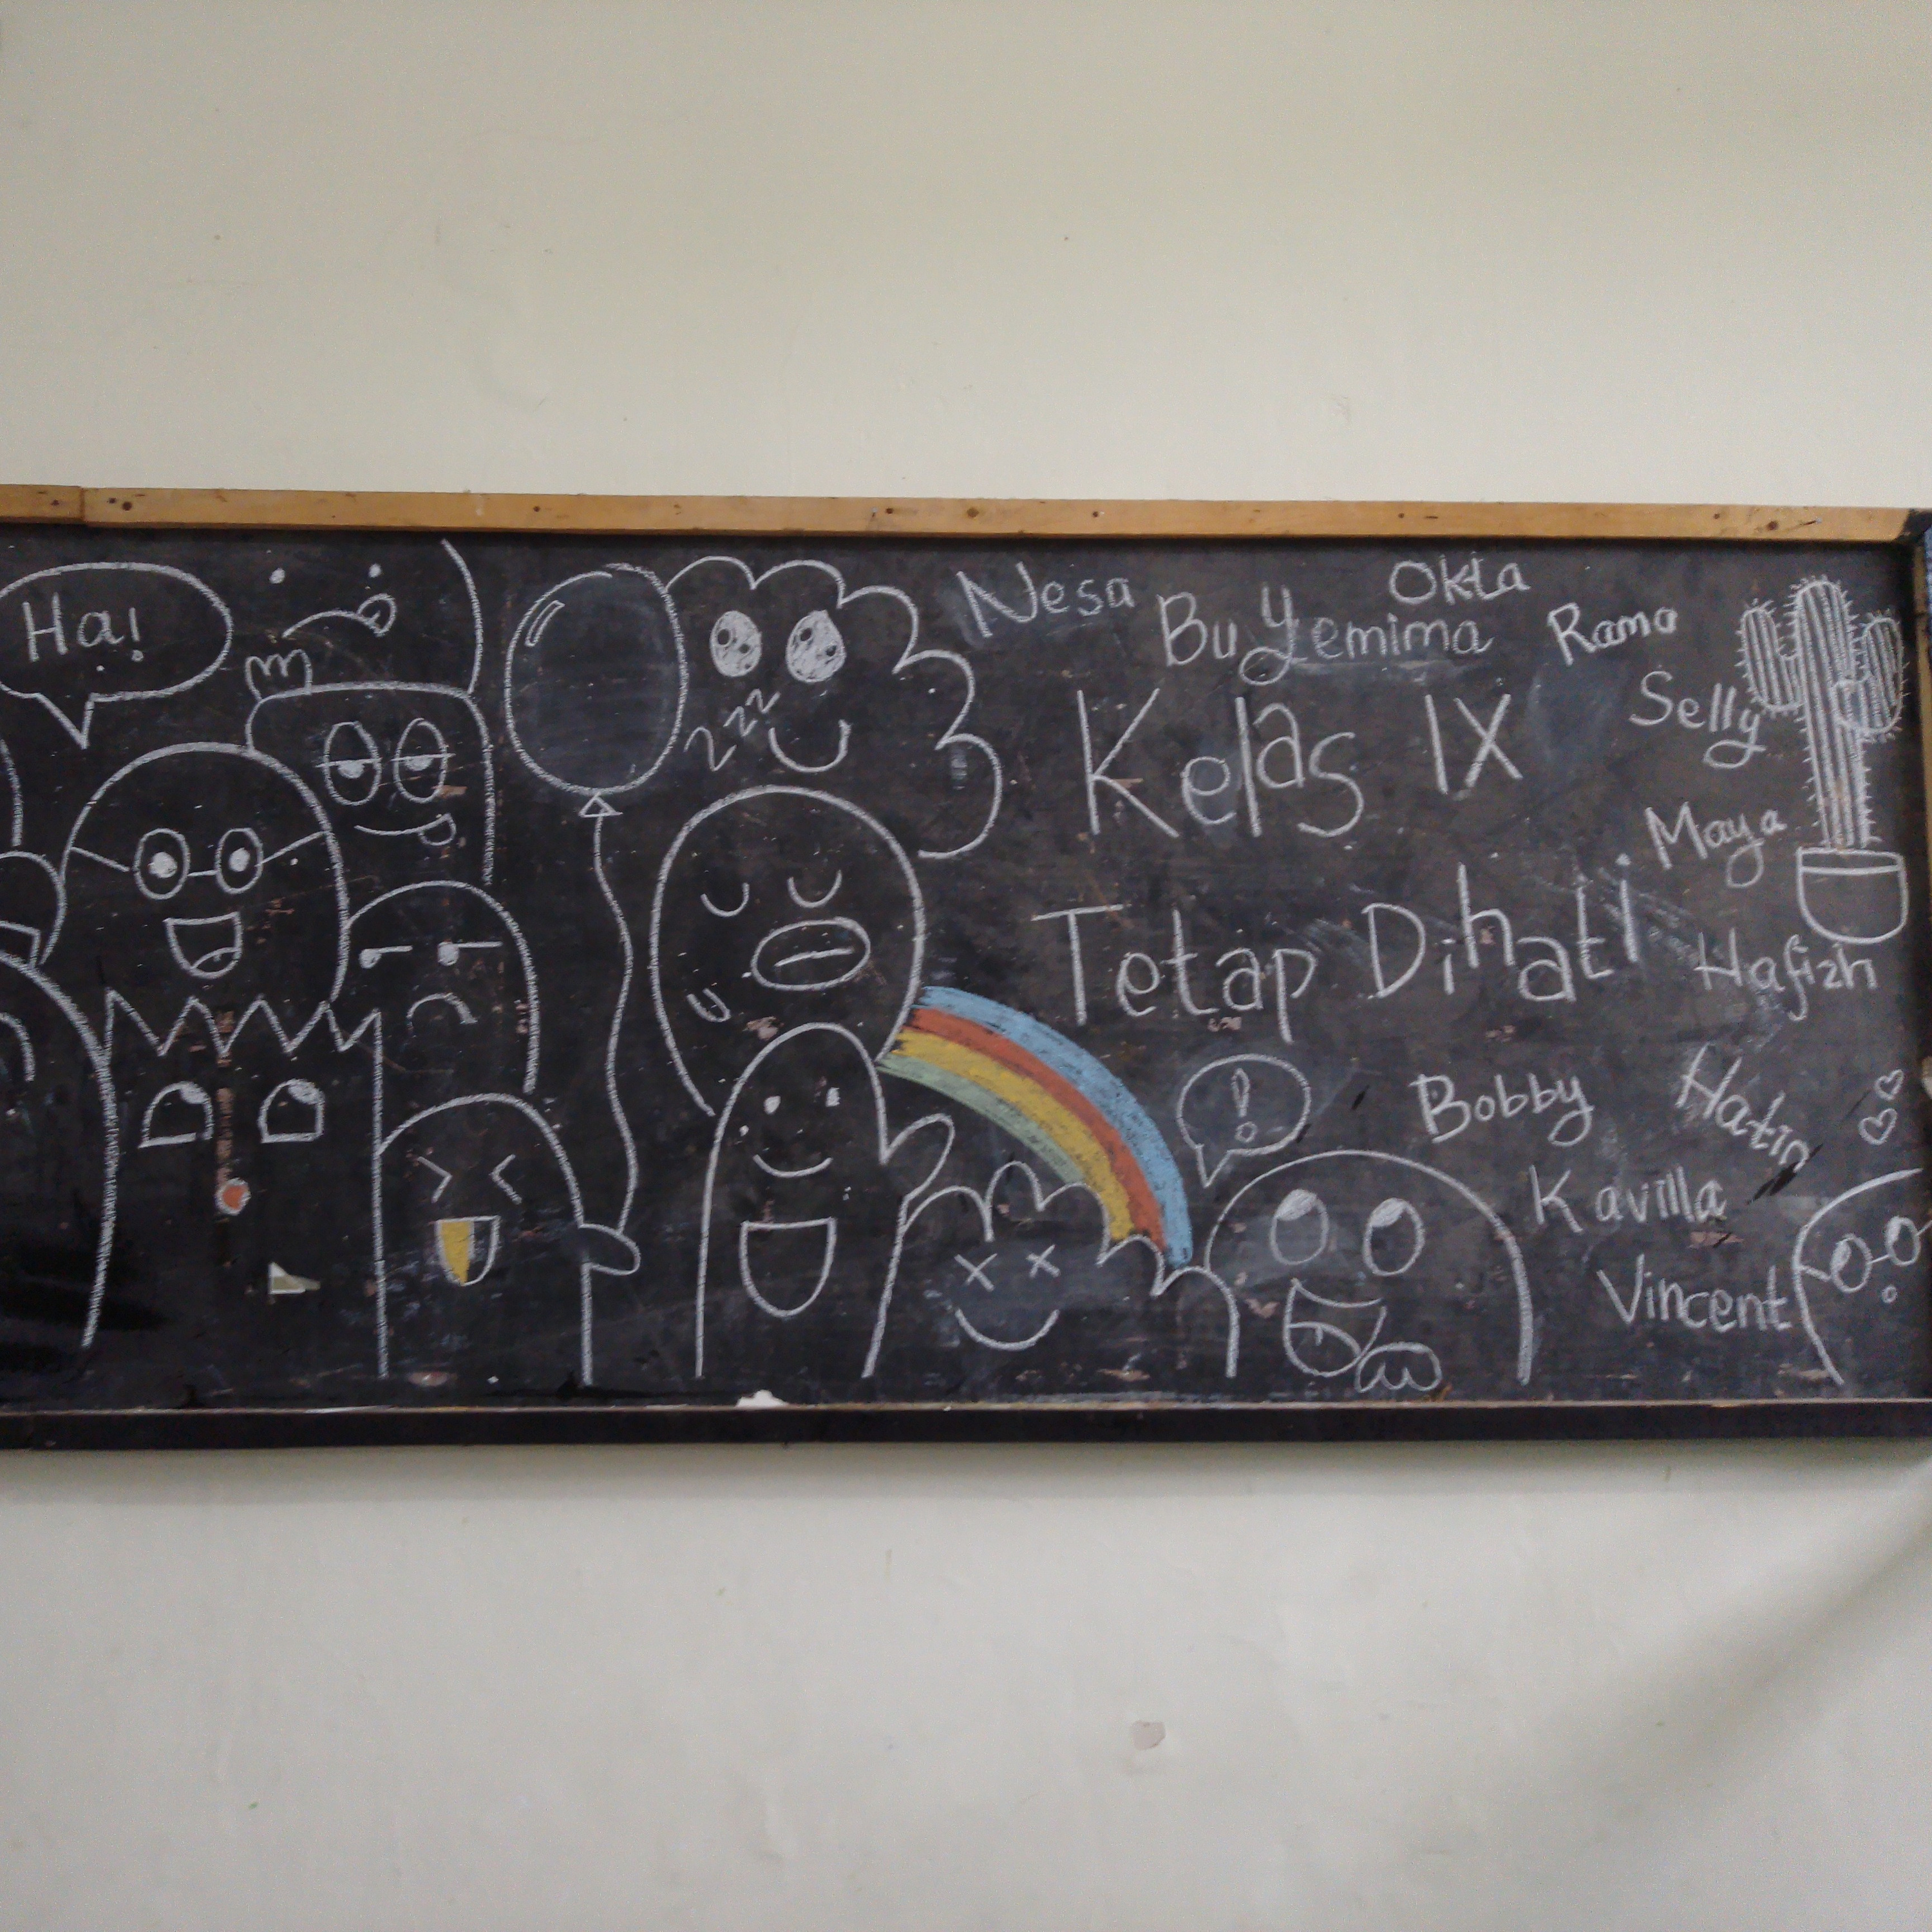 Ha!
zzz
Nesa
Bu Yemima
Okta
Rama
Selly
Kelas IX
Maya
Tetap Dihati
Hafizh
!
Bobby
Kavilla
Vincent